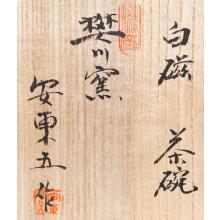 白磁 茶碗
樊川窯
安東五作